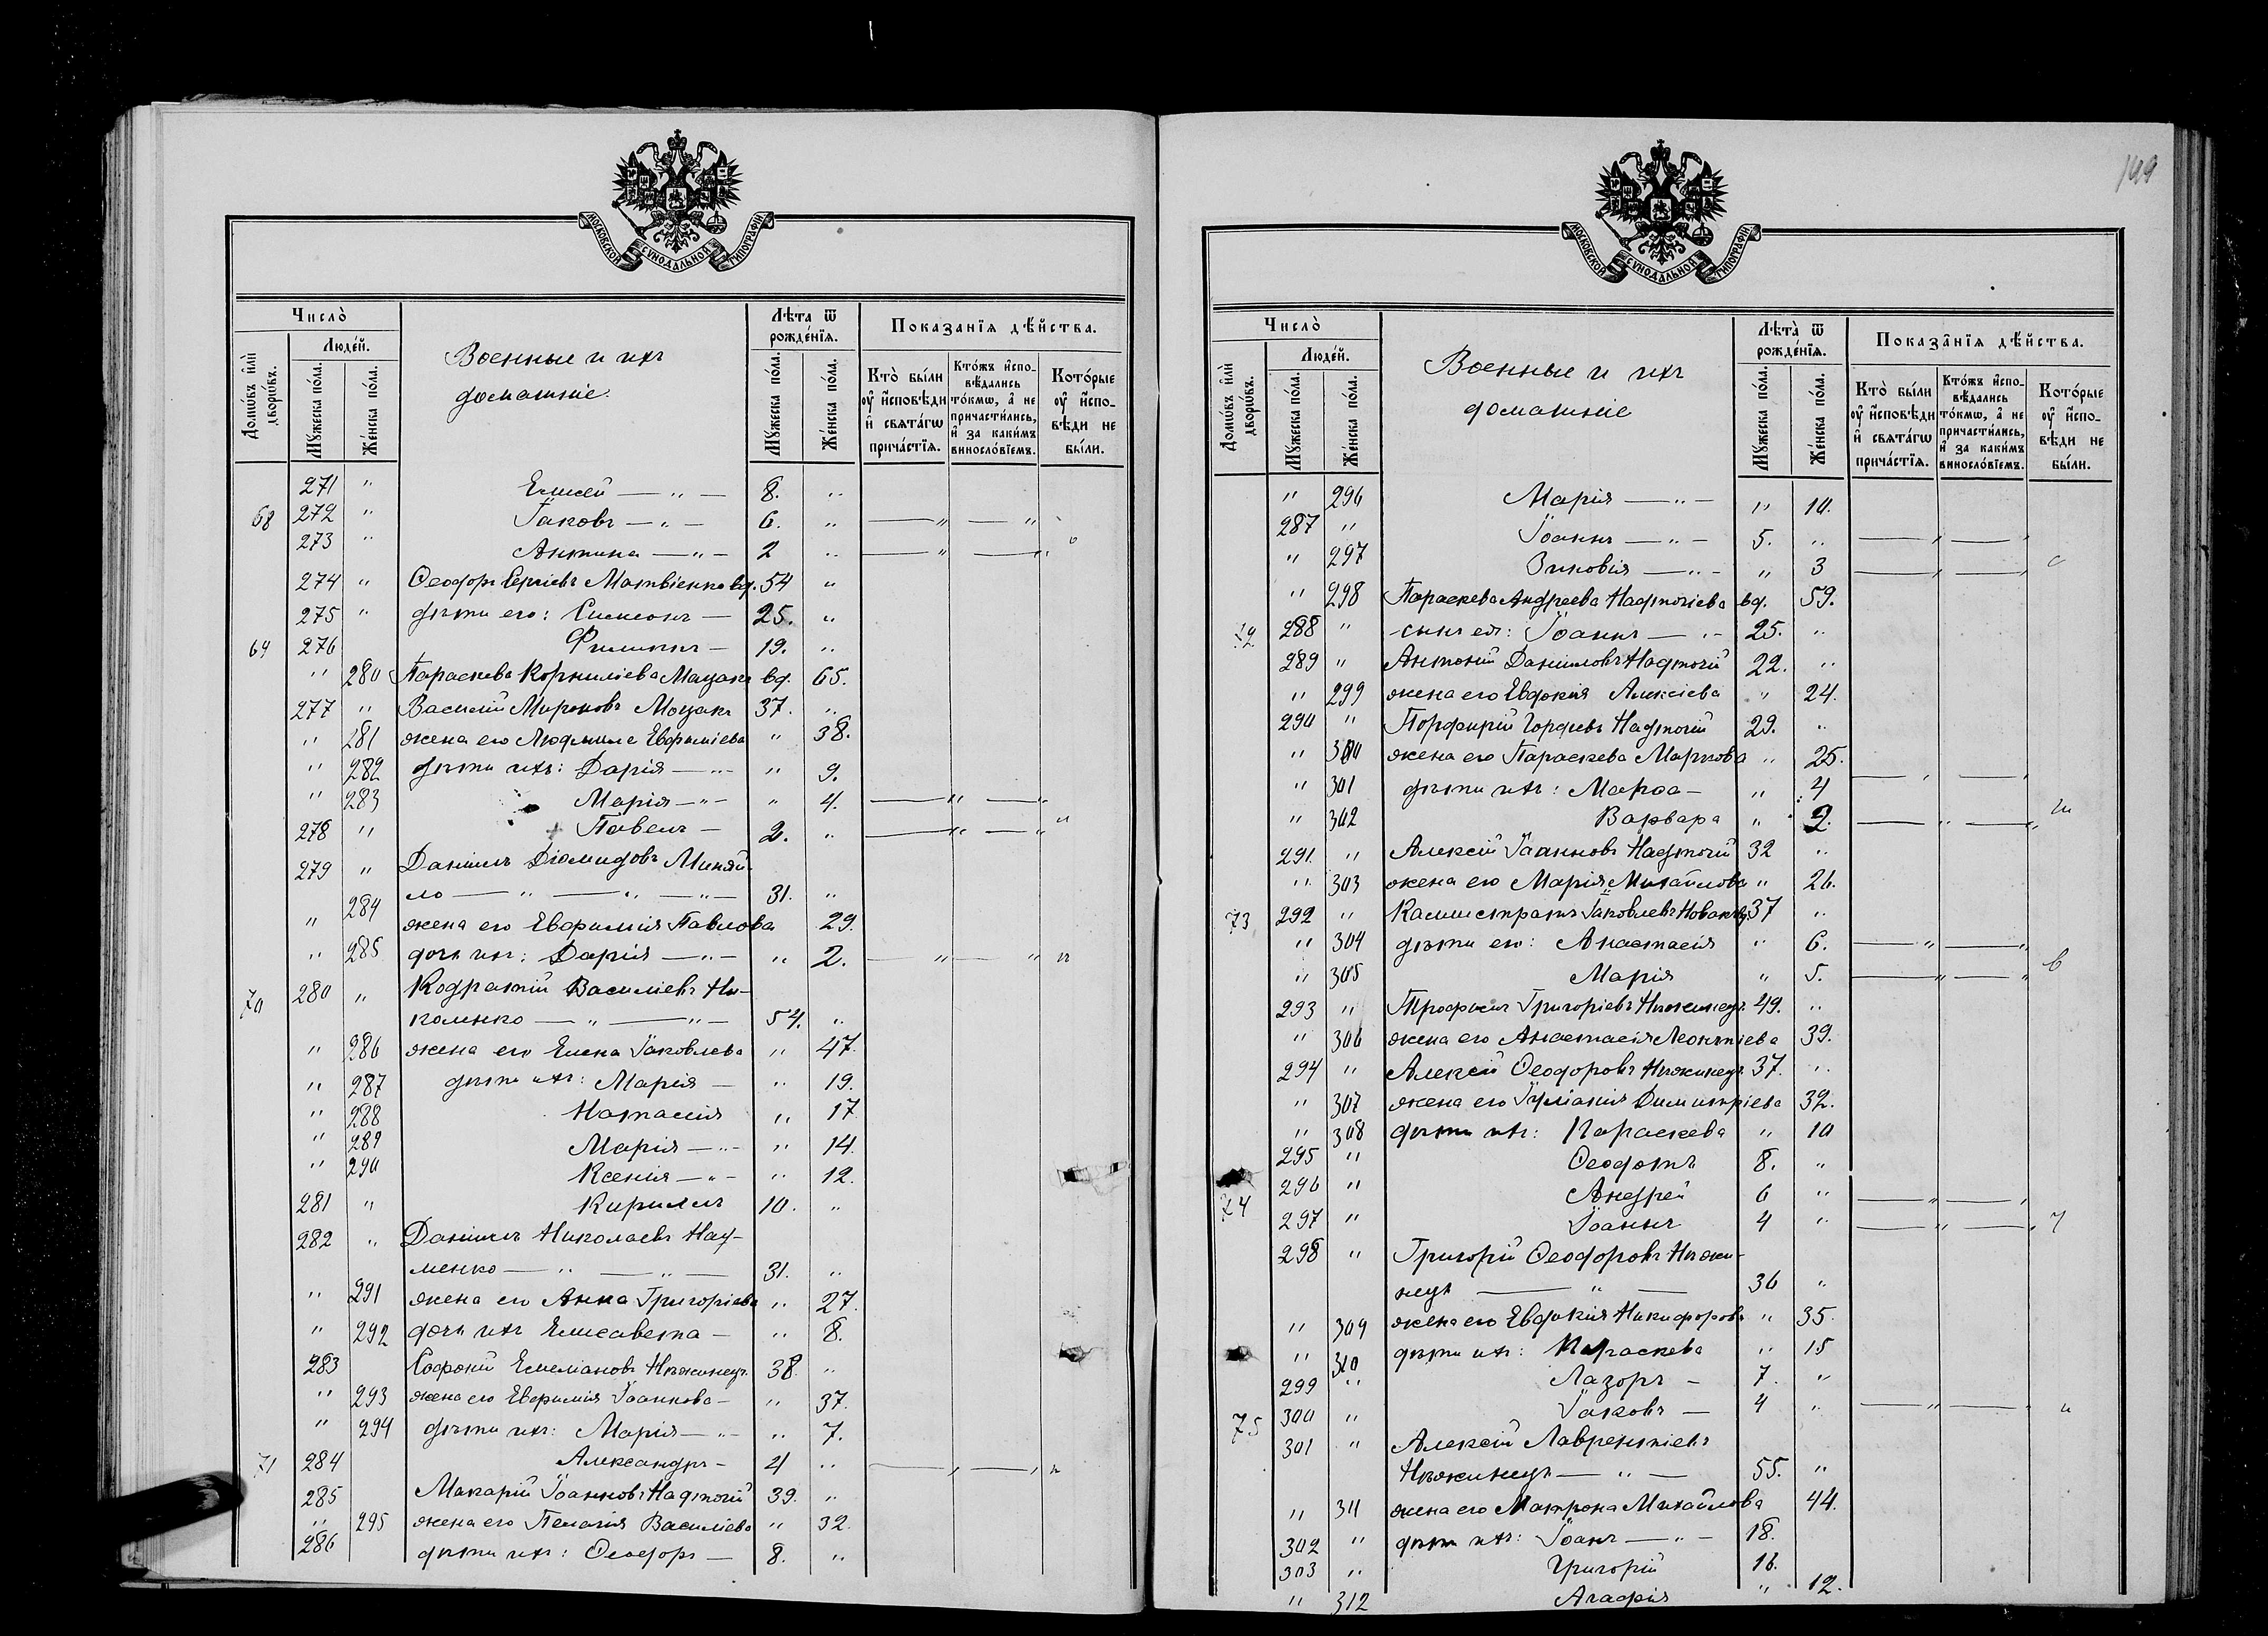 149
МОСКОВСКОЙ СѴНОДАЛЬНОЙ ТИПОГРАФІИ
Число̀
Домѡвъ и҆лѝ дворѡ́въ.
Люде́й.
Мꙋ́жеска по́ла.
Же́нска по́ла.
Военные и ихъ
домашніе.
Лѣта ѿ рожде́нїѧ.
Мꙋ́жеска по́ла.
Же́нска по́ла.
Показанїѧ дѣ́йства.
Кто̀ бы́ли оу҆ и҆сповѣди и҆ свѧта́гѡ прича́стїѧ.
Кто́жъ и҆спо-
вѣдались то́кмѡ, а҆ не причасти́лись, и҆ за каки́мъ винослові́емъ.
Кото́рые оу҆ и҆спо-
вѣди не бы́ли.
271 " Елисей — " — 8. "
68 272 " Іаковъ — " — 6. "
273 " Антина — " — 2 "
274 " Ѳеодоръ Сергіевъ Матвіенко вд. 54 "
275 " дѣти его: Симеонъ — 25. "
69 276 Филиппъ — 19. "
" 280 Параскева Корниліева Мацакъ вд. 65.
277 " Василій Мироновъ Моцакъ 37. "
" 281 жена его Людмила Евфиміева " 38.
" 282 дѣти ихъ: Дарія — " — " 9.
" 283 Марія — " — " 4.
278 " Павелъ — 2. "
279 " Даніилъ Діомидовъ Миняй-
ло — " — " — " — 31. "
" 284 жена его Евфимія Павлова 29.
" 285 дочь ихъ: Дарія — " — " 2.
70 280 " Кодратій Василіевъ Ни-
коленко — " — " — 54. "
" 286 жена его Елена Іаковлева " 47.
" 287 дѣти ихъ: Марія — " 19.
" 288 Наталія " 17
" 289 Марія — " — " 14.
" 290 Ксенія — " — " 12.
281 " Кириллъ 10. "
282 " Даніилъ Николаевъ Нау-
менко — " — " — 31. "
" 291 жена его Анна Григоріева " 27.
" 292 дочь ихъ Елисавета — " 8.
283 Софоній Емеліановъ Нѣжинецъ 38. "
" 293 жена его Евфимія Іоаннова — " 37.
" 294 дѣти ихъ: Марія — " — " 7.
71 284 Александръ — 4 "
285 Макарій Іоанновъ Надточій 39. "
" 295 жена его Пелагія Василіева " 32.
286 дѣти ихъ: Ѳеодоръ — 8. "
МОСКОВСКОЙ СѴНОДАЛЬНОЙ ТИПОГРАФІИ
Число̀
Домѡвъ и҆лѝ дворѡ́въ.
Люде́й.
Мꙋ́жеска по́ла.
Же́нска по́ла.
Военные и ихъ
домашніе
Лѣта̀ ѿ рожде́нїѧ.
Мꙋ́жеска по́ла.
Же́нска по́ла.
Показа́нїѧ дѣ́йства.
Кто̀ бы́ли оу҆ и҆сповѣди и҆ свѧта́гѡ прича́стїѧ.
Кто́жъ и҆спо-
вѣдались то́кмѡ, а҆ не причасти́лись, и҆ за каки́мъ винослові́емъ.
Кото́рые оу҆ и҆спо-
вѣди не бы́ли.
" 296 Марія — " — " 10.
287 " Іоаннъ — " — 5. "
" 297 Зиновія — " — " 3
" 298 Параскева Андреева Надточіева вд. 59.
72 288 " сынъ ея: Іоаннъ — " — 25. "
289 " Антоній Даниловъ Надточій 22. "
" 299 жена его Евдокія Алексіева " 24.
290 " Порфирій Гордіевъ Надточій 29. "
" 300 жена его Параскева Маркова " 25.
" 301 дѣти ихъ: Марѳа — " 4
" 302 Варвара " 2.
291. " Алексій Іоанновъ Надточій 32 "
" 303 жена его Марія Михайлова " 26.
73 292 " Каллистратъ Іаковлевъ 37 "
" 304 дѣти его: Анастасія " 6.
" 305 Марія " 5.
293 " Трофимъ Григоріевъ Нѣжинецъ 49. "
" 306 жена его Анастасія Леонтіева 39.
294 " Алексій Ѳеодоровъ Нѣжинецъ 37. "
" 307 жена его Іуліанія Димитріева 32.
" 308 дѣти ихъ: Параскева " 10
295 " Ѳеодотъ 8. "
296 " Андрей 6 "
74 297 " Іоаннъ 4 "
298 " Григорій Ѳеодоровъ Нѣжи-
нецъ — " — 36 "
" 309 жена его Евдокія Никифорова " 35.
" 310 дѣти ихъ: Параскева " 15
299 " Лазарь — 7. "
75 300 " Іаковъ — 4 "
301 " Алексій Лаврентіевъ
Нѣжинецъ — " — 55. "
" 311 жена его Матрона Михайлова 44.
302 " дѣти ихъ: Іоанъ — " — 18.
303 " Григорій 16.
" 312 Агафія " 12.